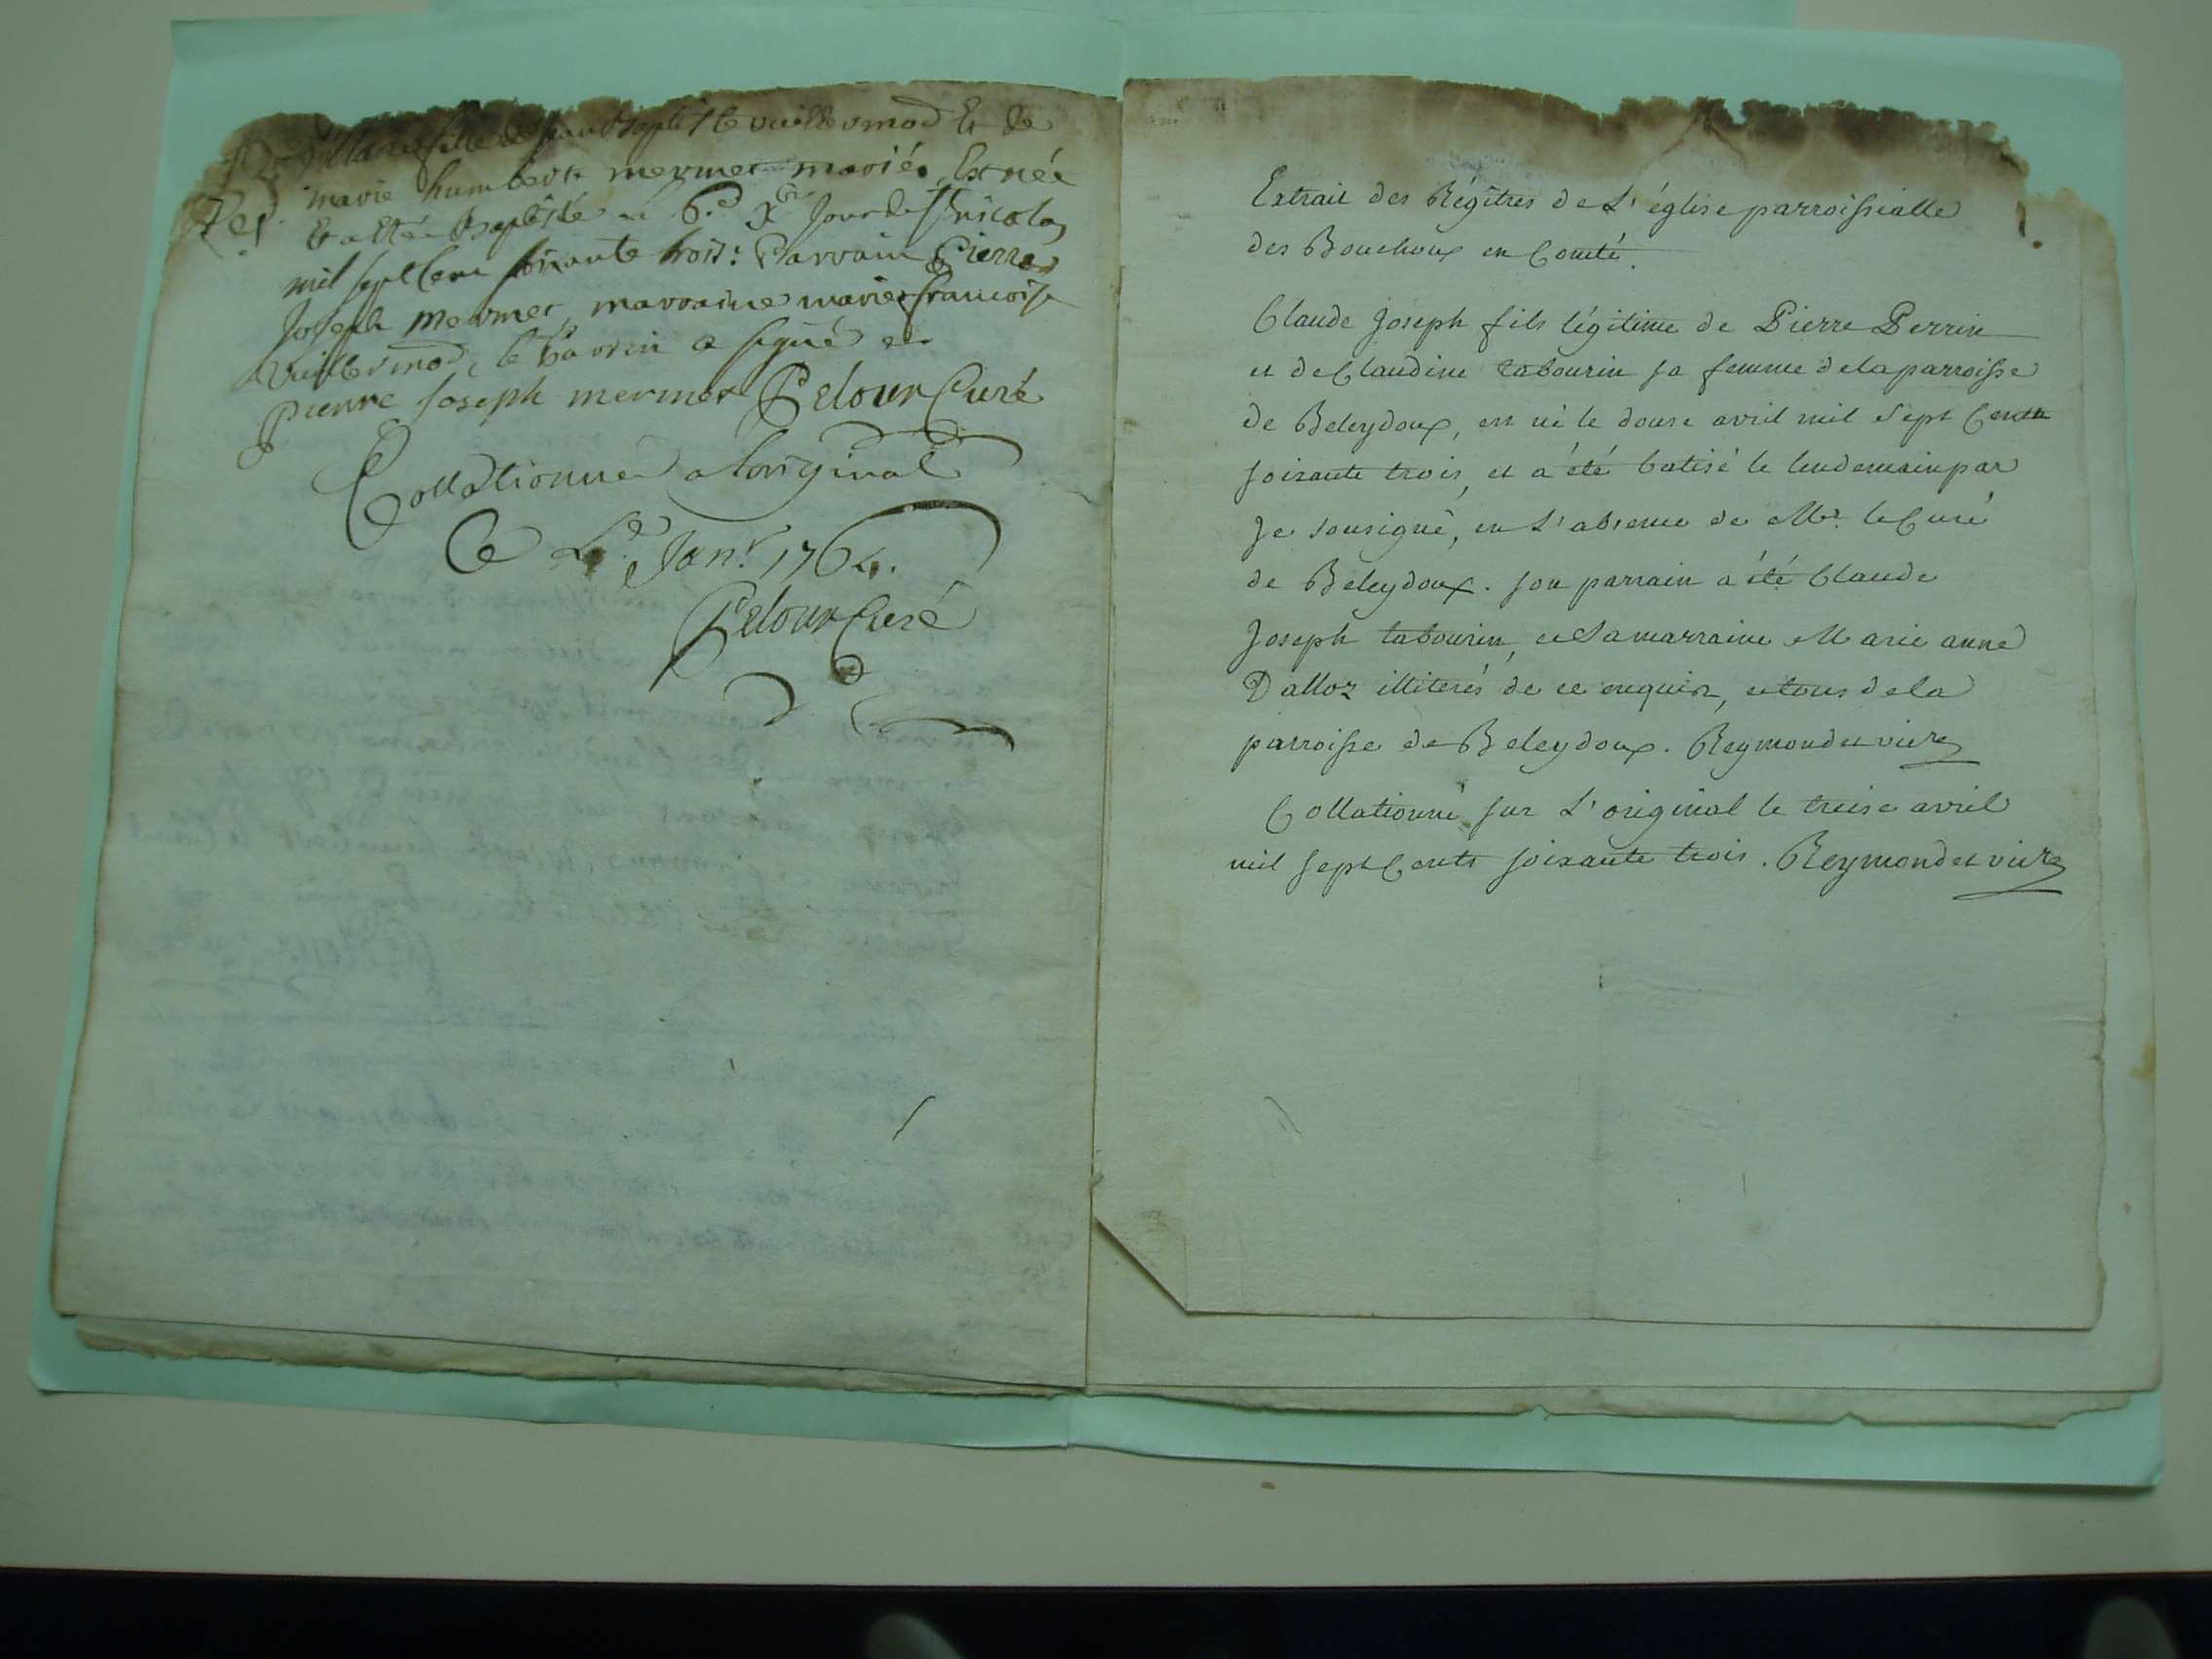 Marie fille de jean baptiste vuillermod Et de
marie humberte mermet mariés, Est née
Et a Eté baptisée le 6.e Xbre Jour de St Nicolas
mil sept cent soixante trois: Parrain Pierre
Joseph mermet, marraine marie francoise
Vuillermod, le parrin a signé
pierre joseph mermet Pelour Curé
Collationné a loriginal
Ce Janr. 1764.
Pelour Curé
Extrait des Régîtres de L'église parroissialle
des Bouchoux en Comté.
Claude Joseph fils légitime de Pierre Perrin
et de Claudine tabourin sa femme de la parroisse
de Beleydoux, est né le douse avril mil Sept Cents
soixante trois, et a été batisé le lendemain par
Je sousigné, en L'absence de Mr. le Curé
de Beleydoux. son parrain a été Claude
Joseph tabourin, et Sa marraine Marie anne
Dalloz illiterés de ce enquis, et tous de la
parroisse de Beleydoux. Reymondet vicre
Collationné sur L'original le treise avril
mil sept Cents soixante trois. Reymondet vicre